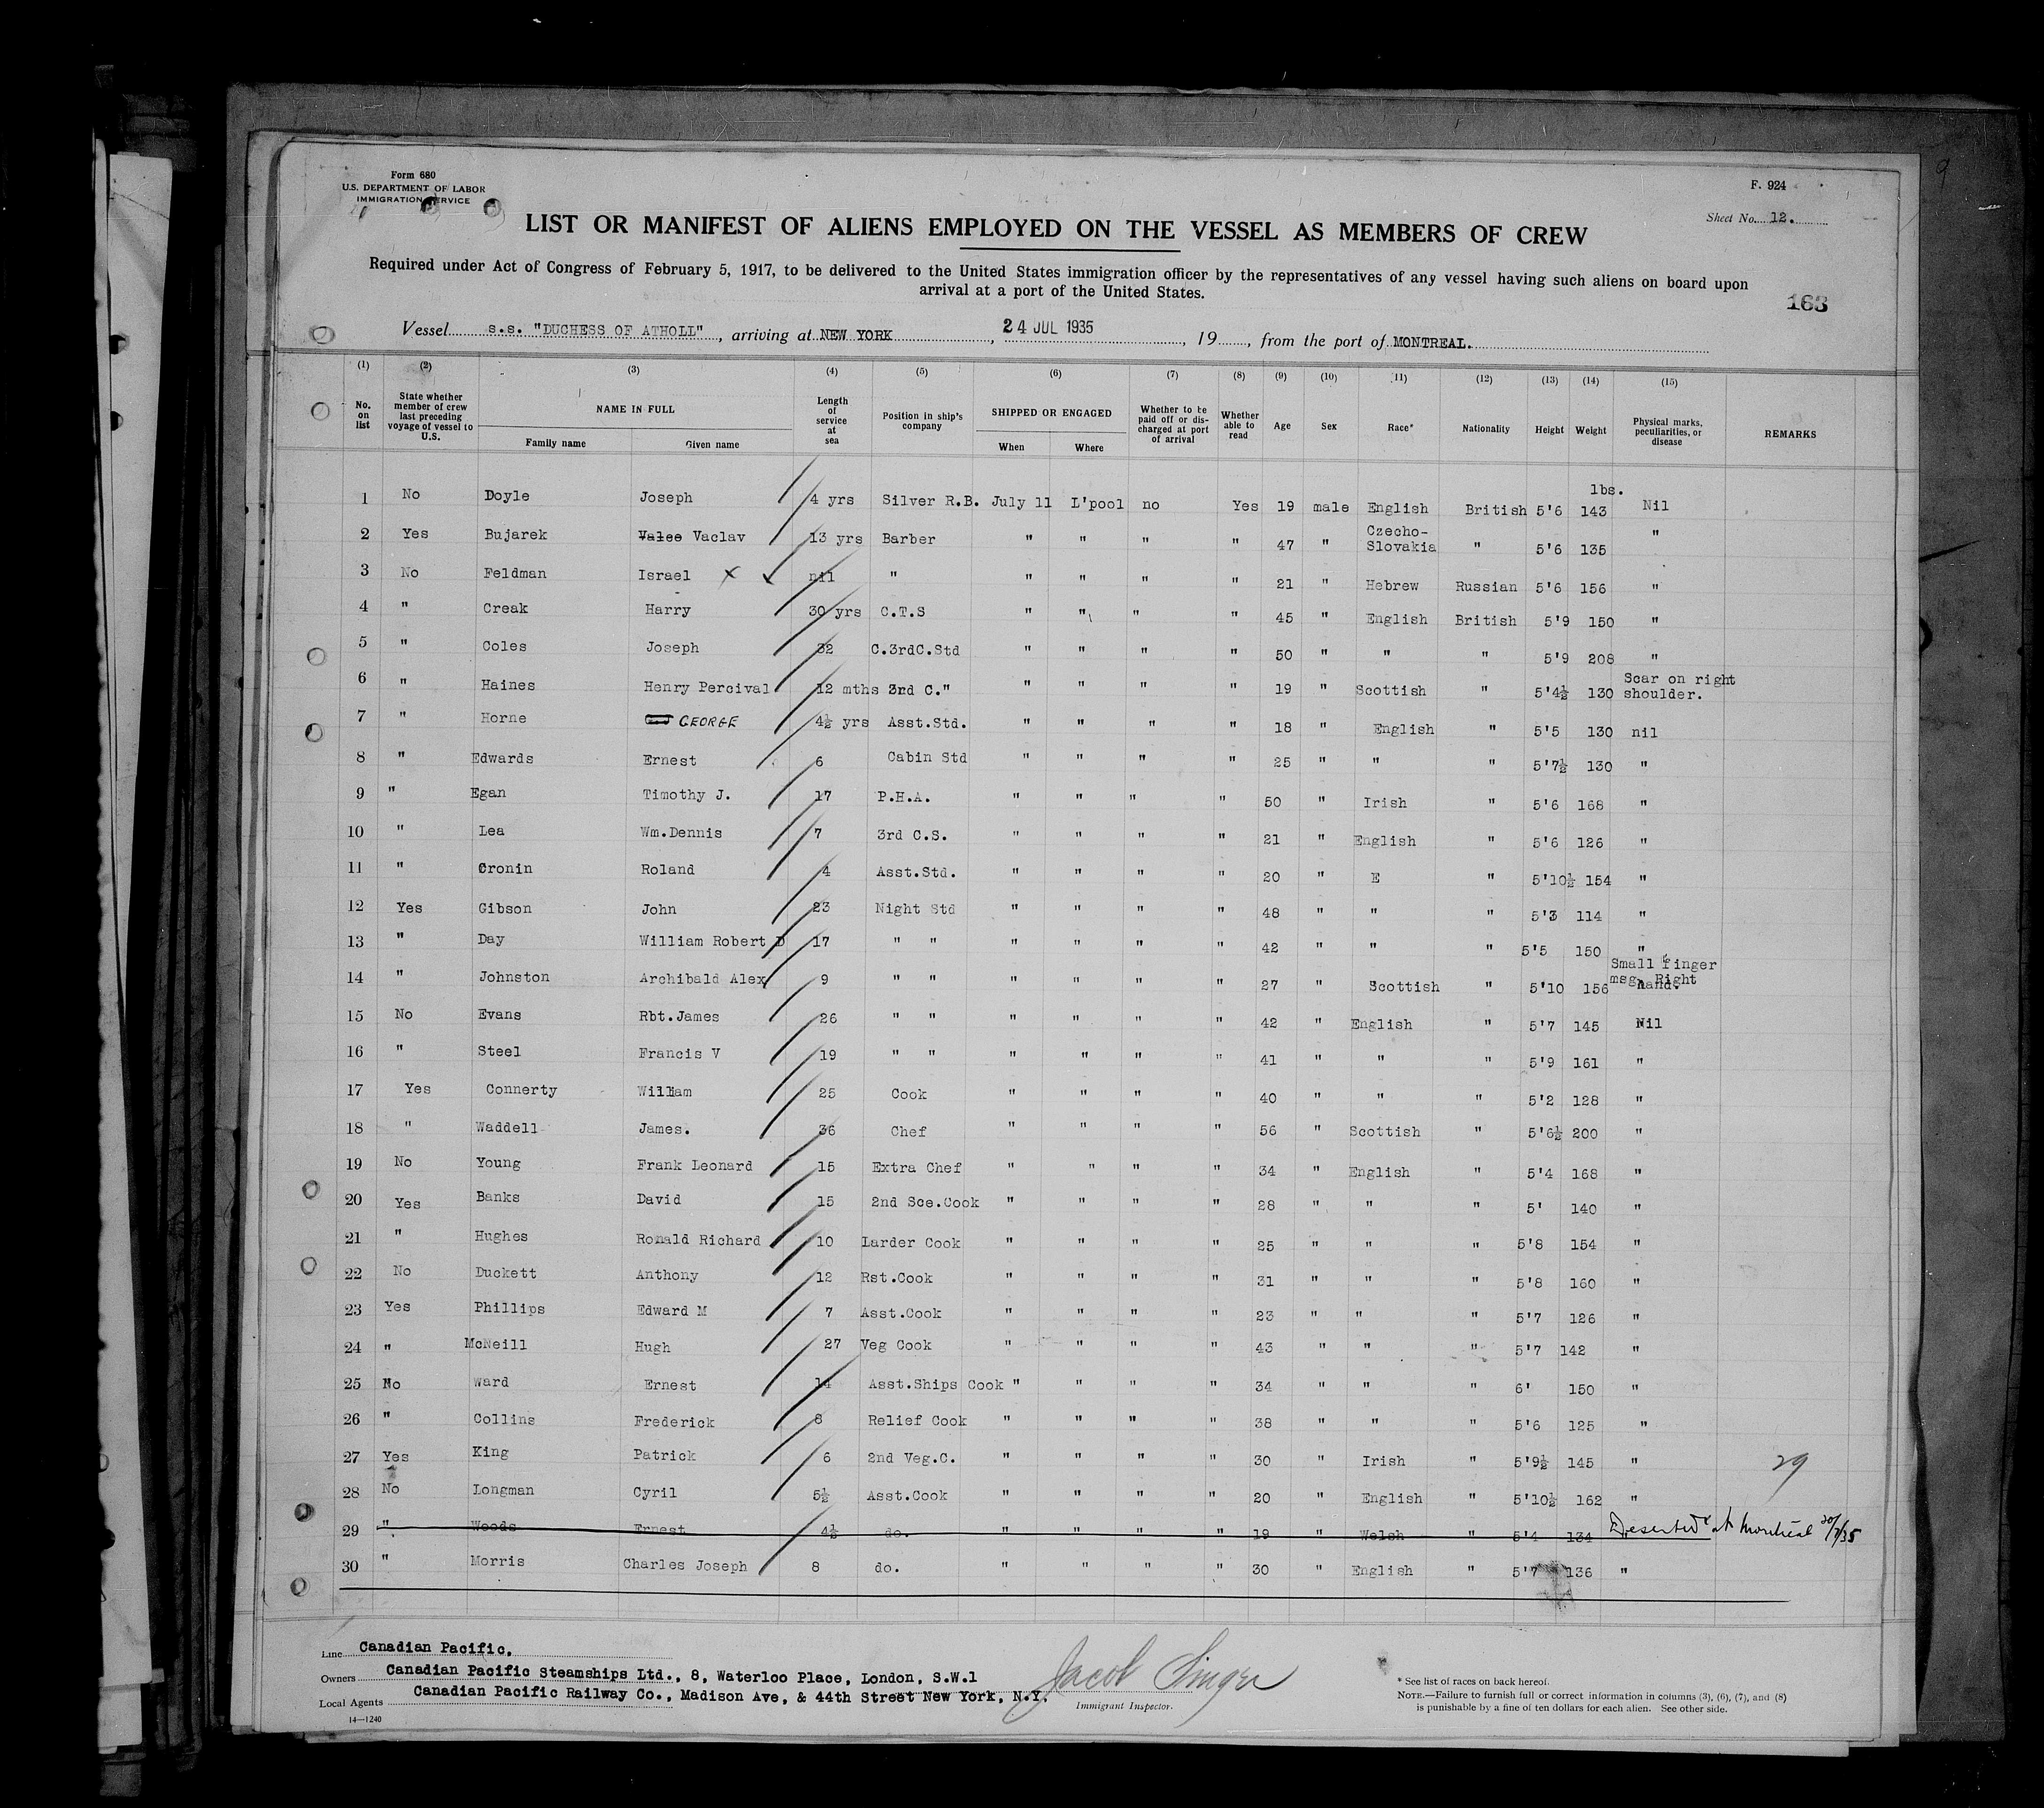 Form 680
U.S. DEPARTMENT OF LABOR
IMMIGRATION SERVICE
F. 924
Sheet No. 12.
LIST OR MANIFEST OF ALIENS EMPLOYED ON THE VESSEL AS MEMBERS OF CREW
Required under Act of Congress of February 5, 1917, to be delivered to the United States immigration officer by the representatives of any vessel having such aliens on board upon
arrival at a port of the United States.
163
Vessel s.s. "DUCHESS OF ATHOLL", arriving at NEW YORK, 24 JUL 1935, 19, from the port of MONTREAL.
(1) (2) (3) (4) (5) (6) (7) (8) (9) (10) (11) (12) (13) (14) (15)
No. on list State whether member of crew last preceding voyage of vessel to U.S. NAME IN FULL Family name Given name Length of service at sea Position in ship's company SHIPPED OR ENGAGED When Where Whether to be paid off or discharged at port of arrival Whether able to read Age Sex Race* Nationality Height Weight Physical marks, peculiarities, or disease REMARKS
lbs.
1 No Doyle Joseph 4 yrs Silver R.B. July 11 L'pool no Yes 19 male English British 5'6 143 Nil
2 Yes Bujarek Valee Vaclav 13 yrs Barber " " " " 47 " Czecho-Slovakia " 5'6 135 "
3 No Feldman Israel x ✓ nil " " " " " 21 " Hebrew Russian 5'6 156 "
4 " Creak Harry 30 yrs C.T.S " " " " 45 " English British 5'9 150 "
5 " Coles Joseph 32 C.3rdC.Std " " " " 50 " " " 5'9 208 "
6 " Haines Henry Percival 12 mths 3rd C." " " " " 19 " Scottish " 5'4½ 130 Scar on right shoulder.
7 " Horne GEORGE 4½ yrs Asst.Std. " " " " 18 " English " 5'5 130 nil
8 " Edwards Ernest 6 Cabin Std " " " " 25 " " " 5'7½ 130 "
9 " Egan Timothy J. 17 P.H.A. " " " " 50 " Irish " 5'6 168 "
10 " Lea Wm.Dennis 7 3rd C.S. " " " " 21 " English " 5'6 126 "
11 " Cronin Roland 4 Asst.Std. " " " " 20 " E " 5'10½ 154 "
12 Yes Gibson John 23 Night Std " " " " 48 " " " 5'3 114 "
13 " Day William Robert D 17 " " " " " " 42 " " " 5'5 150 "
14 " Johnston Archibald Alex 9 " " " " " " 27 " Scottish " 5'10 156 Small finger msg. Right hand.
15 No Evans Rbt.James 26 " " " " " " 42 " English " 5'7 145 Nil
16 " Steel Francis V 19 " " " " " " 41 " " " 5'9 161 "
17 Yes Connerty William 25 Cook " " " " 40 " " " 5'2 128 "
18 " Waddell James. 36 Chef " " " " 56 " Scottish " 5'6½ 200 "
19 No Young Frank Leonard 15 Extra Chef " " " " 34 " English " 5'4 168 "
20 Yes Banks David 15 2nd Sce.Cook " " " " 28 " " " 5' 140 "
21 " Hughes Ronald Richard 10 Larder Cook " " " " 25 " " " 5'8 154 "
22 No Duckett Anthony 12 Rst.Cook " " " " 31 " " " 5'8 160 "
23 Yes Phillips Edward M 7 Asst.Cook " " " " 23 " " " 5'7 126 "
24 " McNeill Hugh 27 Veg Cook " " " " 43 " " " 5'7 142 "
25 No Ward Ernest 14 Asst.Ships Cook " " " " 34 " " " 6' 150 "
26 " Collins Frederick 8 Relief Cook " " " " 38 " " " 5'6 125 "
27 Yes King Patrick 6 2nd Veg.C. " " " " 30 " Irish " 5'9½ 145 " 29
28 No Longman Cyril 5½ Asst.Cook " " " " 20 " English " 5'10½ 162 "
29 " Woods Ernest 4½ do. " " " " 19 " Welsh " 5'4 134 Deserted at Montreal 20/7/35
30 " Morris Charles Joseph 8 do. " " " " 30 " English " 5'7 136 "
Line Canadian Pacific.
Owners Canadian Pacific Steamships Ltd., 8, Waterloo Place, London, S.W.1
Local Agents Canadian Pacific Railway Co., Madison Ave, & 44th Street New York, N.Y.
14—1240
Jacob Singer
Immigrant Inspector.
* See list of races on back hereof.
NOTE.—Failure to furnish full or correct information in columns (3), (6), (7), and (8)
is punishable by a fine of ten dollars for each alien. See other side.
9